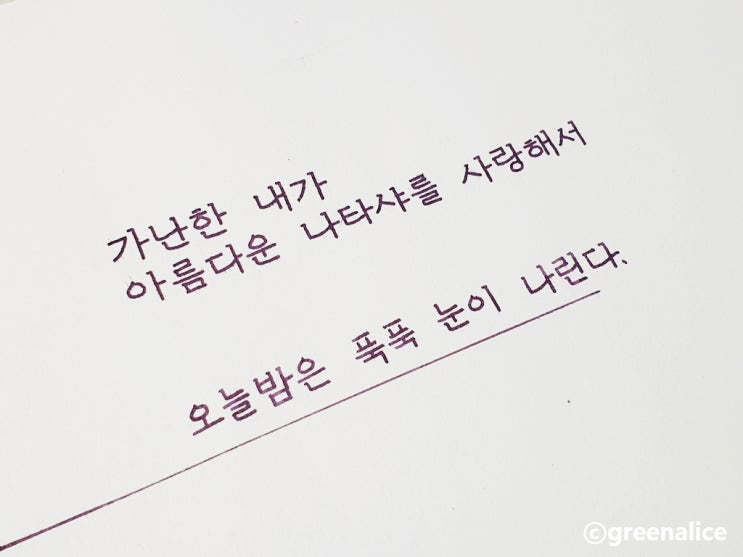 가난한 내가
아름다운 나타샤를 사랑해서
오늘밤은 푹푹 눈이 나린다.
ⓒgreenalice